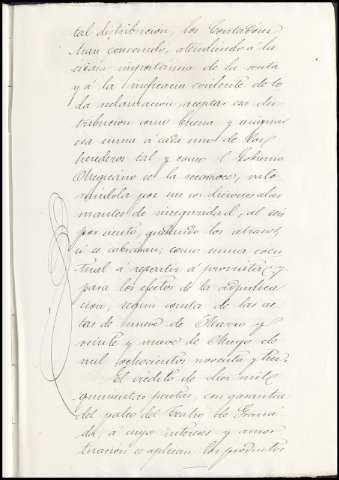 tal distribucion, los Contadores
han convenido, atendiendo á la
escasa importancia de la renta
y á la ineficacia evidente de to
da reclamacion, aceptar esa dis
tribucion como buena y asignar
esa suma á cada uno de los
herederos tal y como el Gobierno
Uruguayo se la reconoce, valo
rándola por
mantes de inseguridad, al seis
por ciento, quedando los atrasos,
si se cobraran, como suma even
tual á repartir á prorrata, y
para los efectos de la adjudica
cion, segun consta de las ac
tas de nueve de Marzo y
veinte y nueve de Mayo de
mil ochocientos noventa y tres.
El crédito de dos mil
quinientas pesetas, con garantia
del palco del Teatro de Grana
da, a cuyos intereses y amor
tizacion se aplican los productos